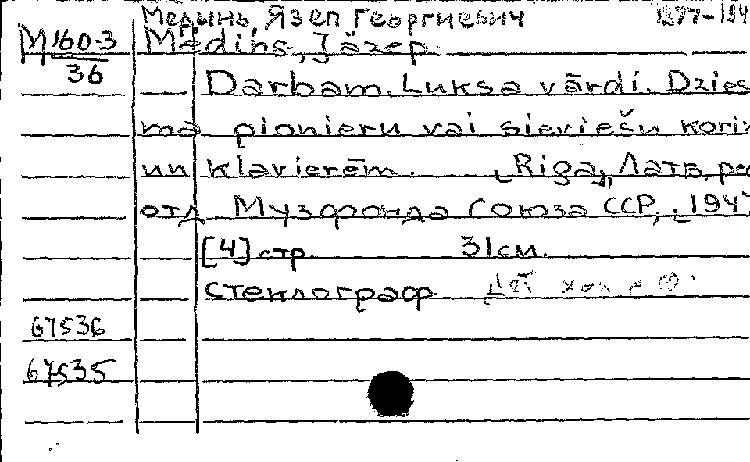 Медынь, Язеп Георгиевич 1877-194
М160-3 Mediņs, Jāzep.
36
Darbam. Luksa vārdi. Dzies
ma pionieru vai sieviešu korim
un klavierēm. [Riga], Латв. рес
отд Музфонда Союза ССР, [194
[4] стр. 31 см.
стеклограф.
67536
67535